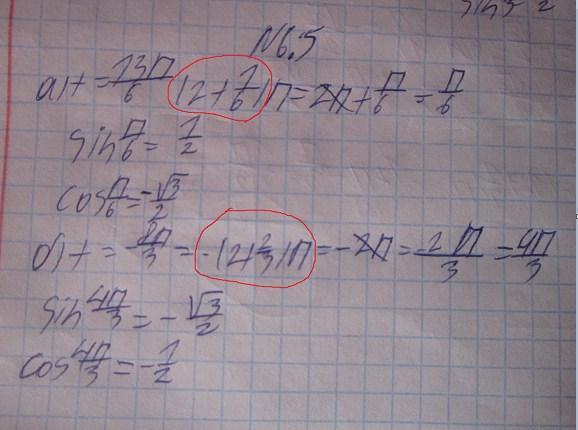 sin 5 2
№6.5
а) t = 13π/6 (2 + 1/6)π = 2π + π/6 = π/6
sin π/6 = 1/2
cos π/6 = -√3/2
б) t = - 8π/3 = -(2 + 2/3)π = -2π = -2π/3 = 4π/3
sin 4π/3 = - √3/2
cos 4π/3 = - 1/2